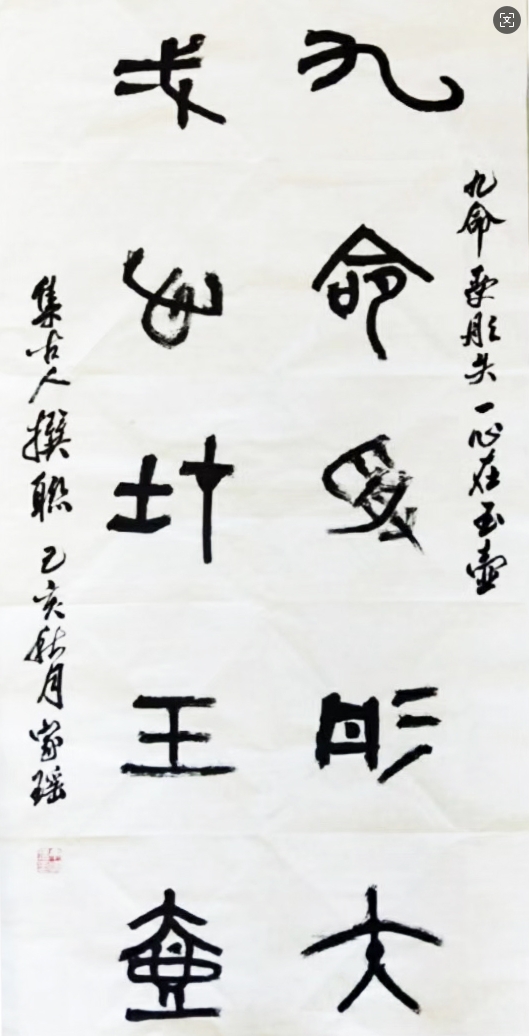 九命受彤矢一心在玉壶
九命受彤矢
弌心在玉壺
集古人撰联己亥秋月家瑶